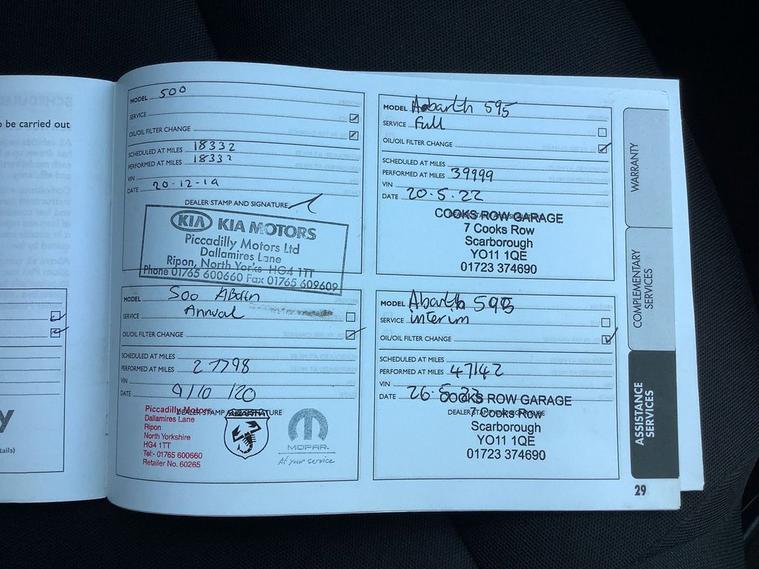 SCHEDULED
o be carried out
tails)
MODEL 500
SERVICE
OIL/OIL FILTER CHANGE
SCHEDULED AT MILES 18332
PERFORMED AT MILES 18332
VIN
DATE 20-12-19
DEALER STAMP AND SIGNATURE
KIA KIA MOTORS
Piccadilly Motors Ltd
Dallamires Lane
Ripon, North Yorks HG4 1TT
Phone 01765 600660 Fax 01765 609609
MODEL 500 Abarth
SERVICE Annual
OIL/OIL FILTER CHANGE
SCHEDULED AT MILES
PERFORMED AT MILES 27798
VIN
DATE 9/10/20
DEALER STAMP AND SIGNATURE
Piccadilly Motors
Dallamires Lane
Ripon
North Yorkshire
HG4 1TT
Tel:- 01765 600660
Retailer No. 60265
ABARTH
MOPAR
At your service
MODEL Abarth 595
SERVICE Full
OIL/OIL FILTER CHANGE
SCHEDULED AT MILES
PERFORMED AT MILES 39999
VIN
DATE 20.5.22
COOKS ROW GARAGE
7 Cooks Row
Scarborough
YO11 1QE
01723 374690
MODEL Abarth 595
SERVICE interim
OIL/OIL FILTER CHANGE
SCHEDULED AT MILES
PERFORMED AT MILES 47142
VIN
DATE 26-5-23
COOKS ROW GARAGE
7 Cooks Row
Scarborough
YO11 1QE
01723 374690
WARRANTY
COMPLEMENTARY
SERVICES
ASSISTANCE
SERVICES
29